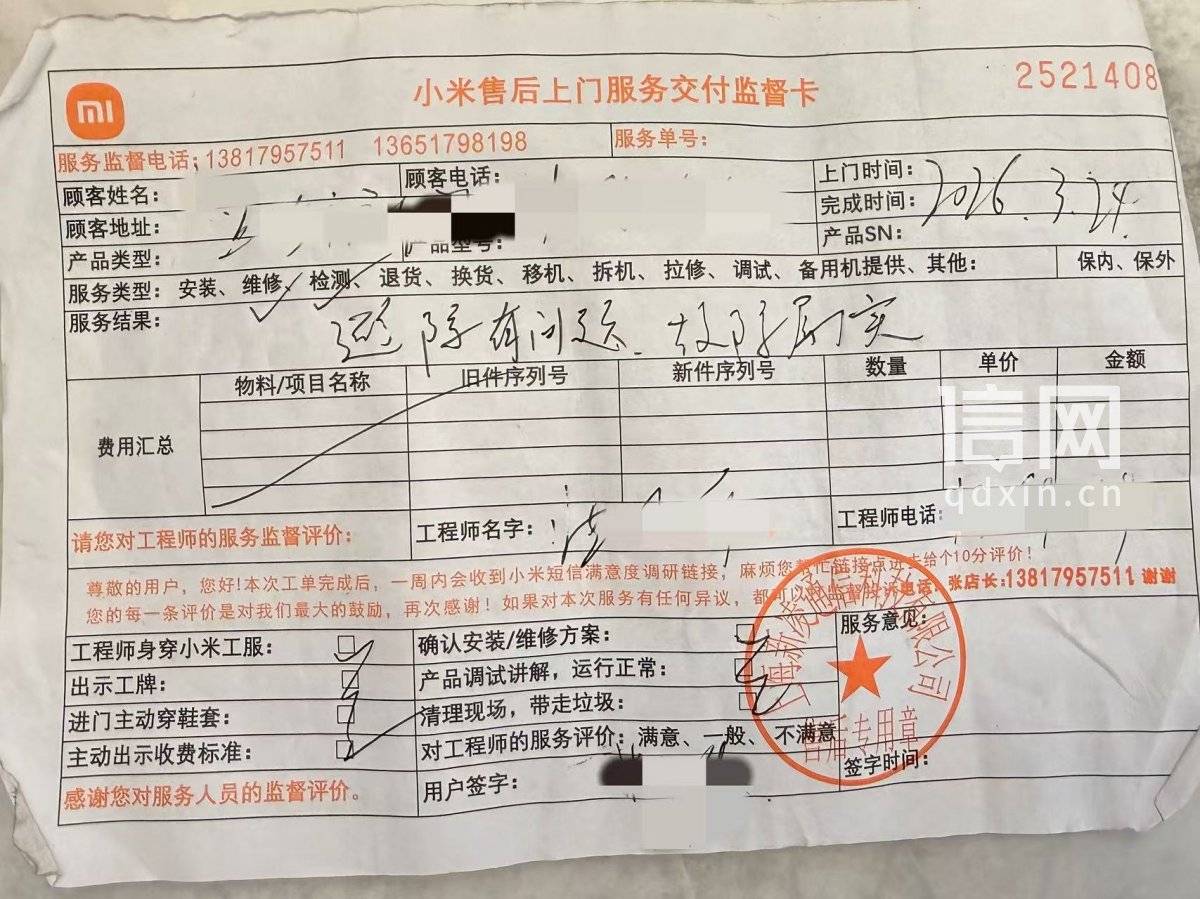 小米售后上门服务交付监督卡
2521408
服务监督电话;13817957511 13651798198
服务单号:
顾客姓名:
顾客电话:
上门时间:
2026.3.24.
顾客地址:
完成时间:
产品类型:
产品型号:
产品SN:
服务类型: 安装、维修、检测、退货、换货、移机、拆机、拉修、调试、备用机提供、其他:
保内、保外
服务结果:
有问题. 故障属实
费用汇总
物料/项目名称
旧件序列号
新件序列号
数量
单价
金额
信网
qdxin.cn
请您对工程师的服务监督评价:
工程师名字:
工程师电话:
尊敬的用户,您好!本次工单完成后,一周内会收到小米短信满意度调研链接,麻烦您帮忙链接点进去给个10分评价!
您的每一条评价是对我们最大的鼓励,再次感谢!如果对本次服务有任何异议,都可以 监督投诉电话,张店长:13817957511 谢谢
工程师身穿小米工服:
确认安装/维修方案:
服务意见:
出示工牌:
产品调试讲解,运行正常:
进门主动穿鞋套:
清理现场,带走垃圾:
主动出示收费标准:
对工程师的服务评价: 满意、一般、不满意
签字时间:
感谢您对服务人员的监督评价。
用户签字:
通信科技有限公司
售后专用章